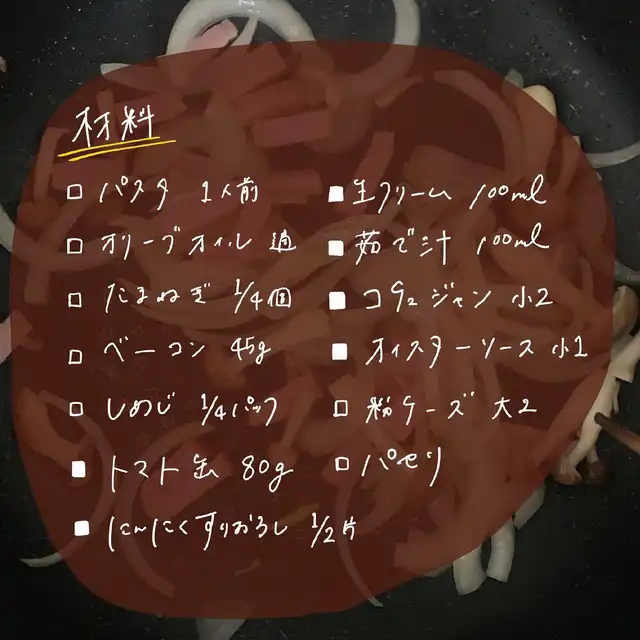 材料
□ パスタ 1人前
□ オリーブオイル 適
□ たまねぎ 1/4個
□ ベーコン 45g
□ しめじ 1/4パック
■ トマト缶 80g
■ にんにくすりおろし 1/2片
■ 生クリーム 100ml
■ 茹で汁 100ml
■ コチュジャン 小2
■ オイスターソース 小1
□ 粉チーズ 大2
□ パセリ